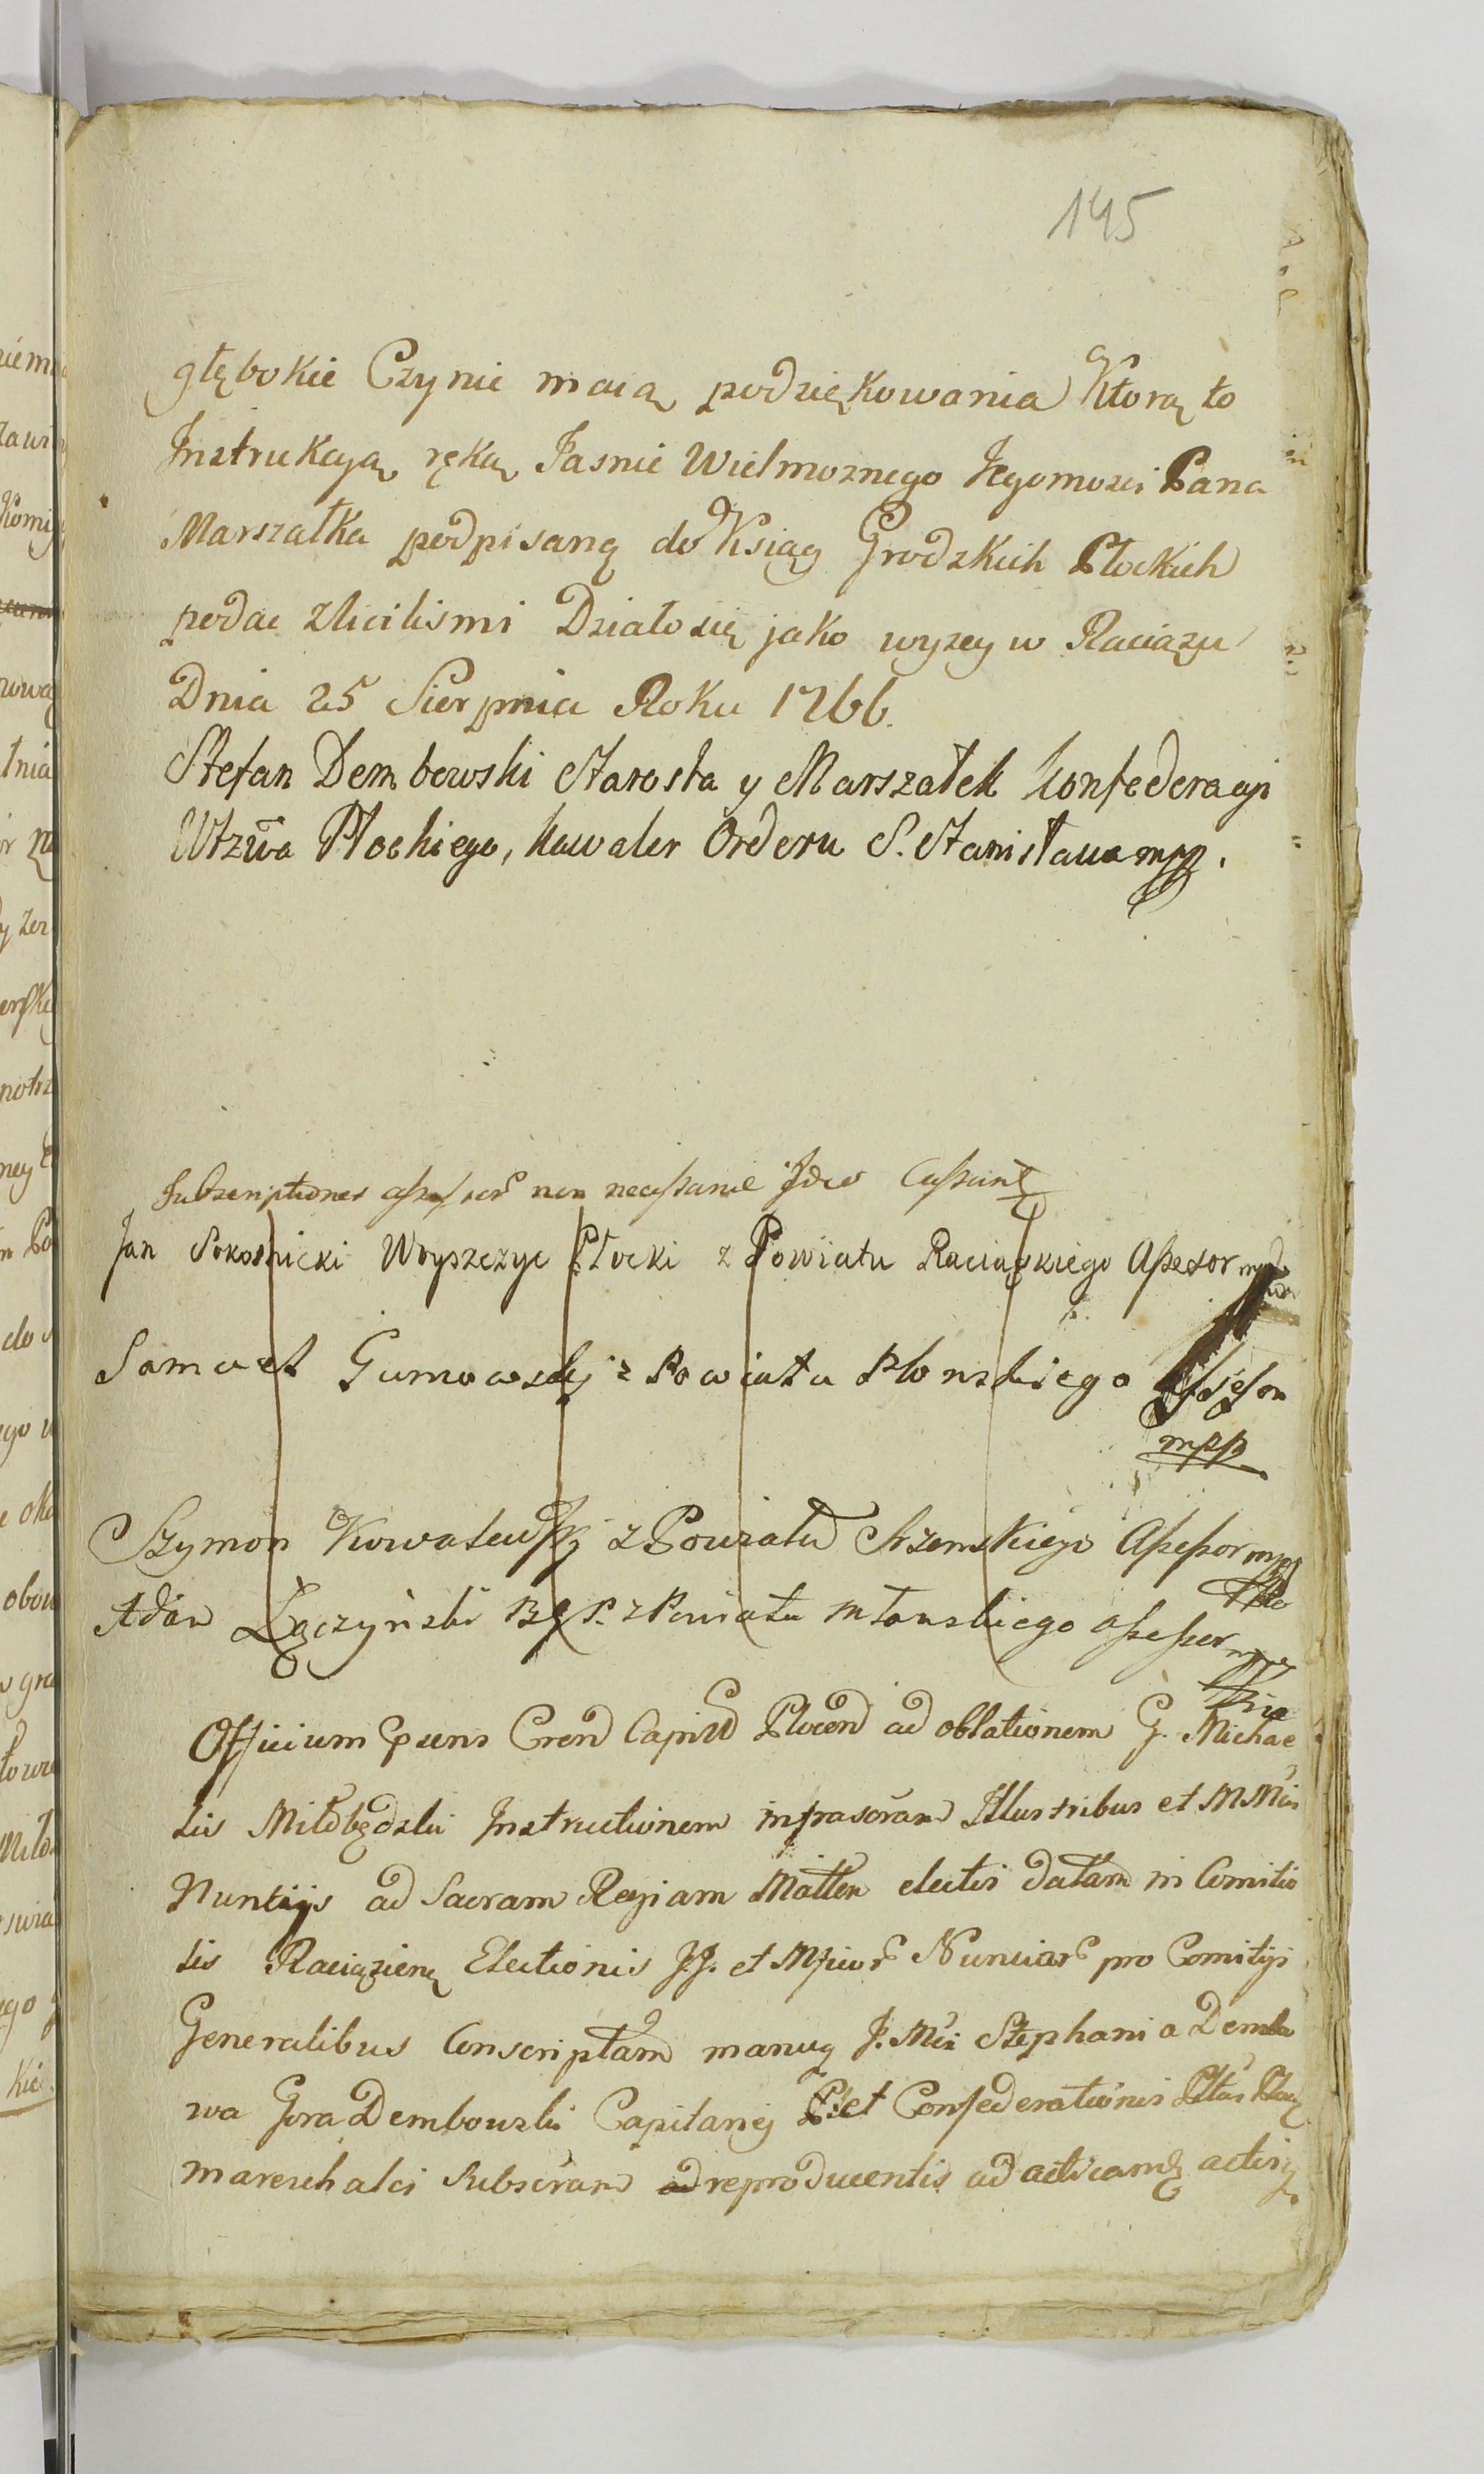 145
głębokie Czynic maią podziękowania Ktorą to
Instrukcyą ręką Jasnie Wielmoznego Jegomosci Pana
Marszałka podpisaną do Ksiąg Grodzkich Płockich
podac zliciliśmi Działo się jako wyzey w Raciązu
Dnia 25 Sierpnia Roku 1766.
Stefan Dembowski Starosta y Marszałek Konfederacyi
Wtzwa Płockiego, Kawaler Orderu S. Stanisława mpp.
Subscriptiones assessor non necessarie Ideo Cassant
Jan Sokolnicki Woyszczyc Płocki z Powiatu Raciąskiego Assesor mpp
Samuel Gumowsky z Powiatu Płonskiego Assesor
mpp
Szymon Kowalewsky z Powiatu Srzenskiego Assessor mpp
Adam Łączyński B. G. P. z Powiatu Mławskiego assessor mpp
Officium Prens Cren Capitl Plocen ad oblationem G. Michae
lis Miłobędzki Instructionem infrascram Illustribus et MMcis
Nuntijs ad Sacram Regiam Matten electis datam in Comitio
lis Raciązien Electionis JJ. et Mficor Nunciar pro Comitijs
Generalibus Conscriptam manuq J. Mci Stephani a Dembo
wa Gora Dembowski Capitanej et Confederationis Pltus Ploc
mareschalci Subscram ad reproducentis ad acticand actis